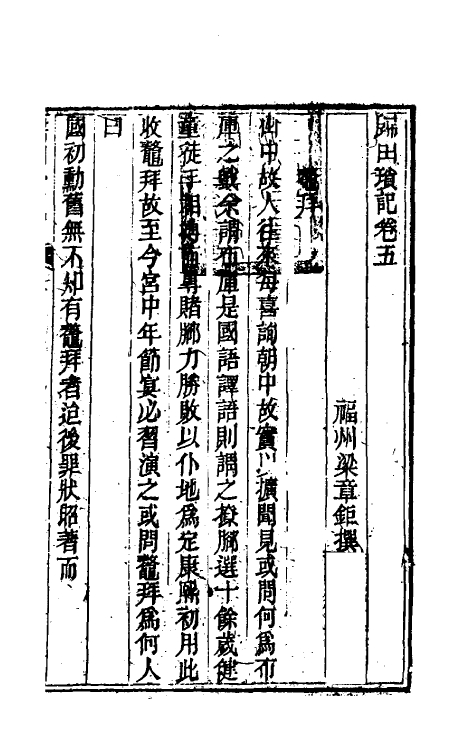 歸田瑣記卷五
福州梁章鉅撰
鼇拜
山中故人往來每喜詢朝中故實以擴聞見或問何為布
庫之戲余謂布庫是國語譯語則謂之撩脚選十餘歲健
童徒手相搏而專賭脚力勝敗以仆地為定康熙初用此
收鼇拜故至今宮中年節宴必習演之或問鼇拜為何人
曰
國初勳舊無不知有鼇拜者迨後罪狀昭著而